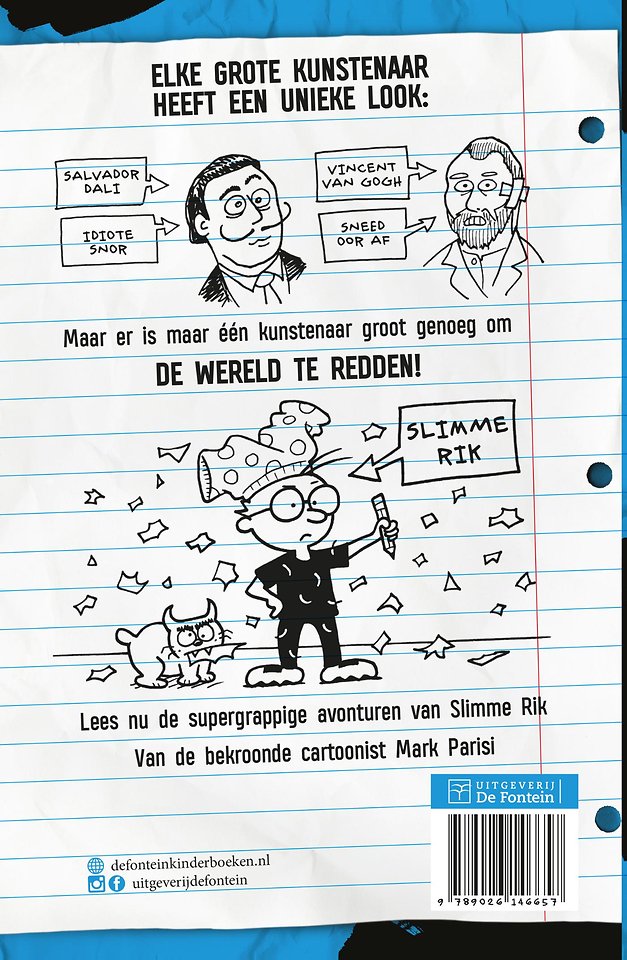 ELKE GROTE KUNSTENAAR
HEEFT EEN UNIEKE LOOK:
SALVADOR
DALI
IDIOTE
SNOR
VINCENT
VAN GOGH
SNEED
OOR AF
Maar er is maar één kunstenaar groot genoeg om
DE WERELD TE REDDEN!
SLIMME
RIK
Lees nu de supergrappige avonturen van Slimme Rik
Van de bekroonde cartoonist Mark Parisi
UITGEVERIJ
De Fontein
defonteinkinderboeken.nl
uitgeverijdefontein
9 789026 146657